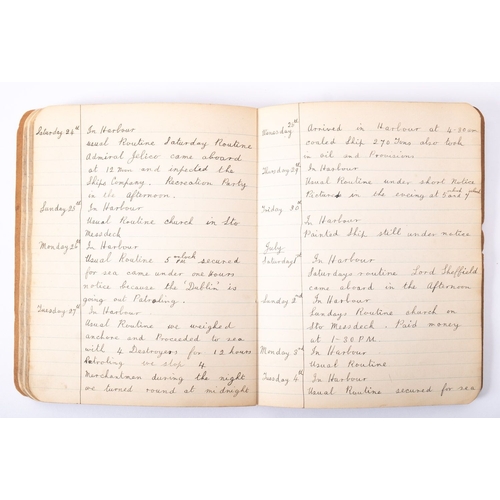 Saturday 24th In Harbour
usual Routine Saturday Routine
Admiral Jelico came aboard
at 12 Noon and inspected the
Ships Company. Recreation Party
in the afternoon.
Sunday 25th In Harbour
Usual Routine church in Sto
Messdeck
Monday 26th In Harbour
Usual Routine 5 oclock secured
for sea came under one hours
notice because the 'Dublin' is
going out Patroling.
Tuesday 27th In Harbour
Usual Routine we weighed
anchors and Proceeded to sea
with 4 Destroyers for 12 hours
Patroling we stop 4
Merchantmen during the night
we turned round at midnight
28th Arrived in Harbour at 4.30 am
coaled Ship 270 Tons also took
in oil and Provisions
Thursday 29th In Harbour
Usual Routine under short Notice
in the evening at 5 oclock and 7 oclock
Friday 30th
In Harbour
Painted Ship still under notice
July
Saturday 1st In Harbour
Saturdays routine Lord Sheffield
came aboard in the Afternoon
Sunday 2nd In Harbour
Sundays Routine church on
Sto Messdeck. Paid money
at 1-30 PM
Monday 3rd In Harbour
Usual Routine
Tuesday 4th In Harbour
Usual Routine secured for sea